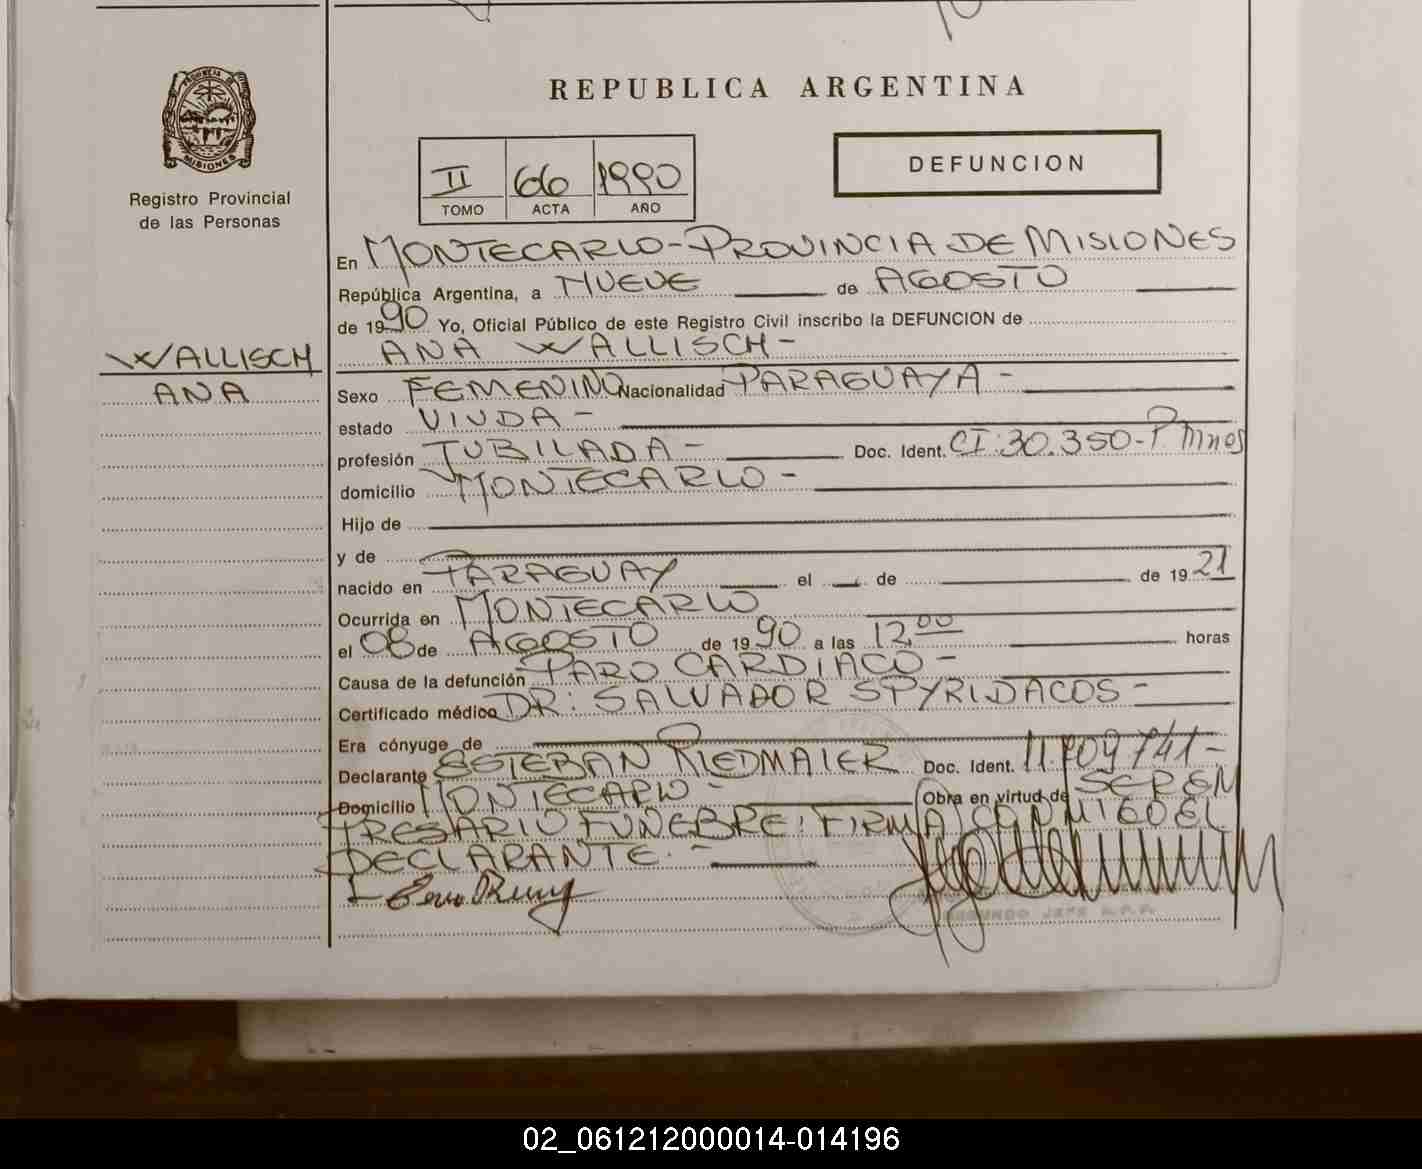 REPUBLICA ARGENTINA
PROVINCIA DE MISIONES
Registro Provincial
de las Personas
II 66 1990
TOMO ACTA AÑO
DEFUNCION
En MONTECARLO-PROVINCIA DE MISIONES
República Argentina, a NUEVE de AGOSTO
de 1990 Yo, Oficial Público de este Registro Civil inscribo la DEFUNCION de
ANA WALLISCH-
WALLISCH
ANA
Sexo FEMENINO Nacionalidad PARAGUAYA-
estado VIUDA-
profesión JUBILADA- Doc. Ident. CI:30.350-P.Mnes
domicilio MONTECARLO-
Hijo de
y de
nacido en PARAGUAY el — de de 1921
Ocurrida en MONTECARLO
el 08 de AGOSTO de 1990 a las 12,00 horas
Causa de la defunción PARO CARDIACO-
Certificado médico DR: SALVADOR SPYRIDACOS-
Era cónyuge de
Declarante ESTEBAN RIEDMAIER Doc. Ident. 11.709741-
Domicilio MONTECARLO- Obra en virtud de SER EM
PRESARIO FUNEBRE: FIRMA CONMIGO EL
DECLARANTE.-
SEGUNDO JEFE R.P.P.
02_061212000014-014196